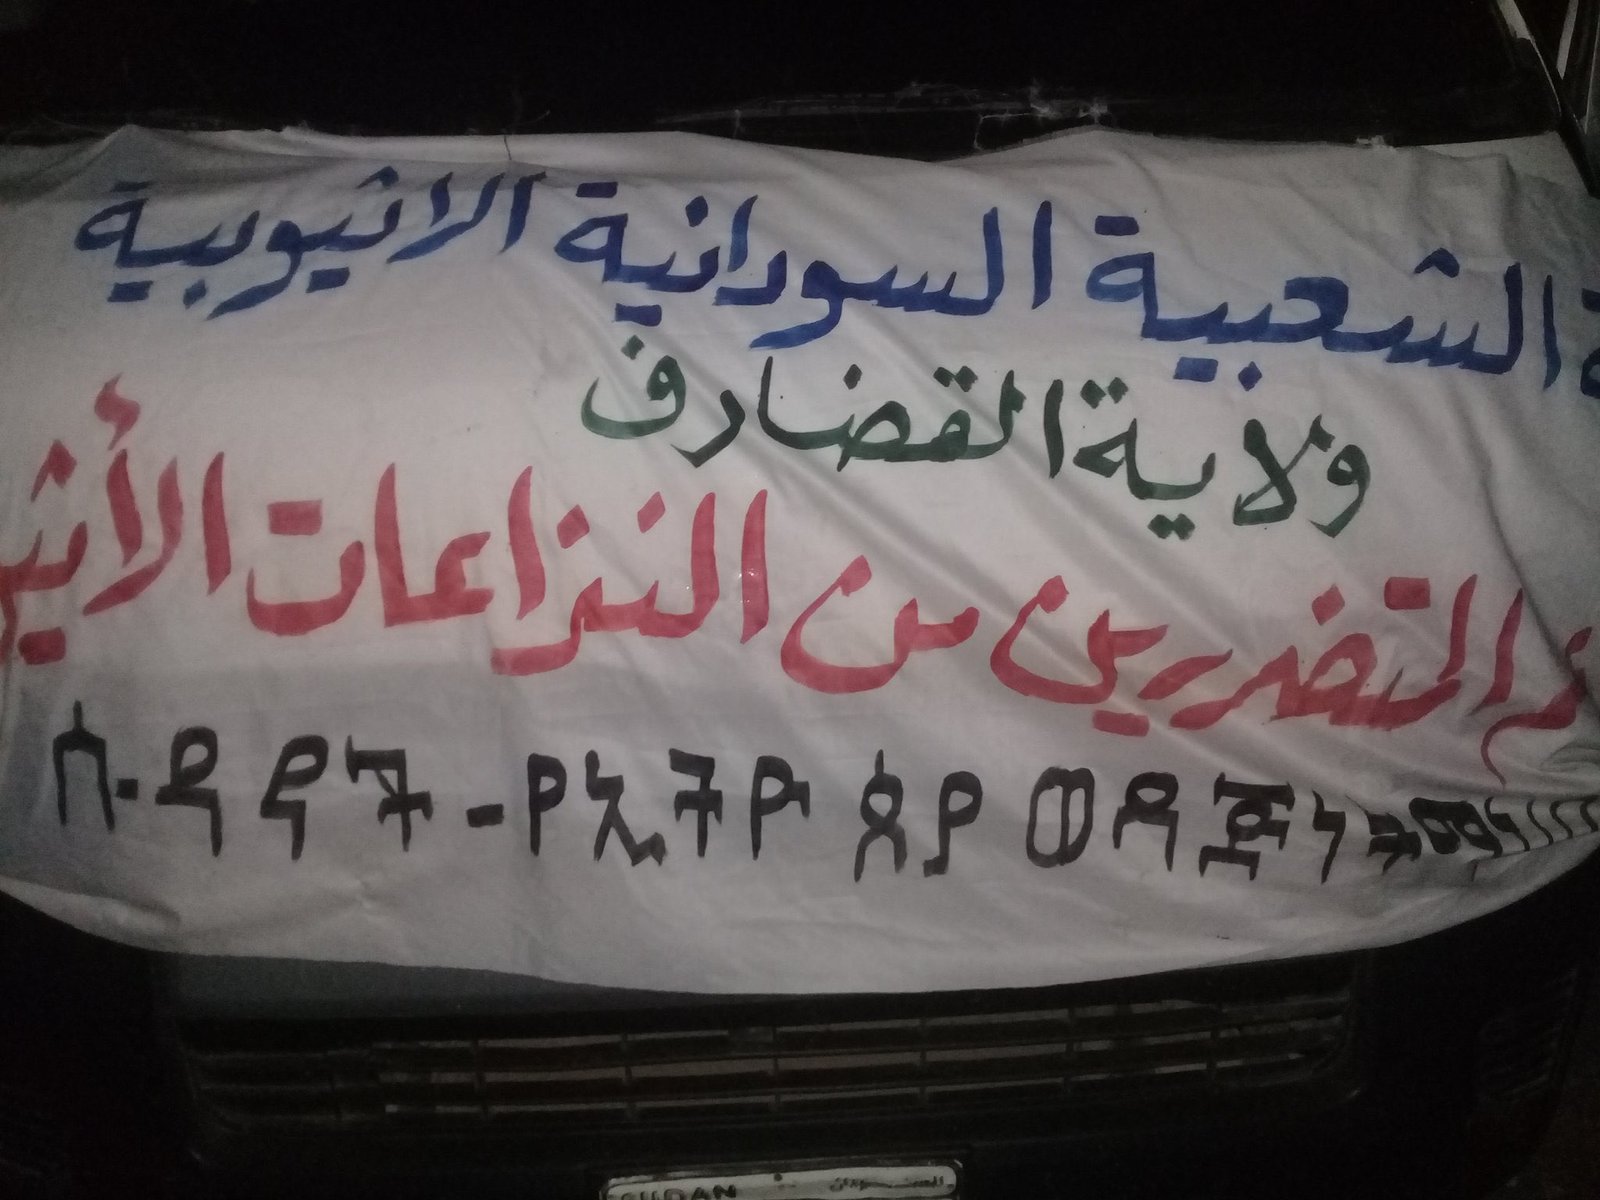 الشعبية السودانية الاثيوبية
ولاية القضارف
المتضررين من النزاعات
ሱ-ዳ ኖች - የኢትዮ ጵያ ወዳጅነት
SUDAN السودان